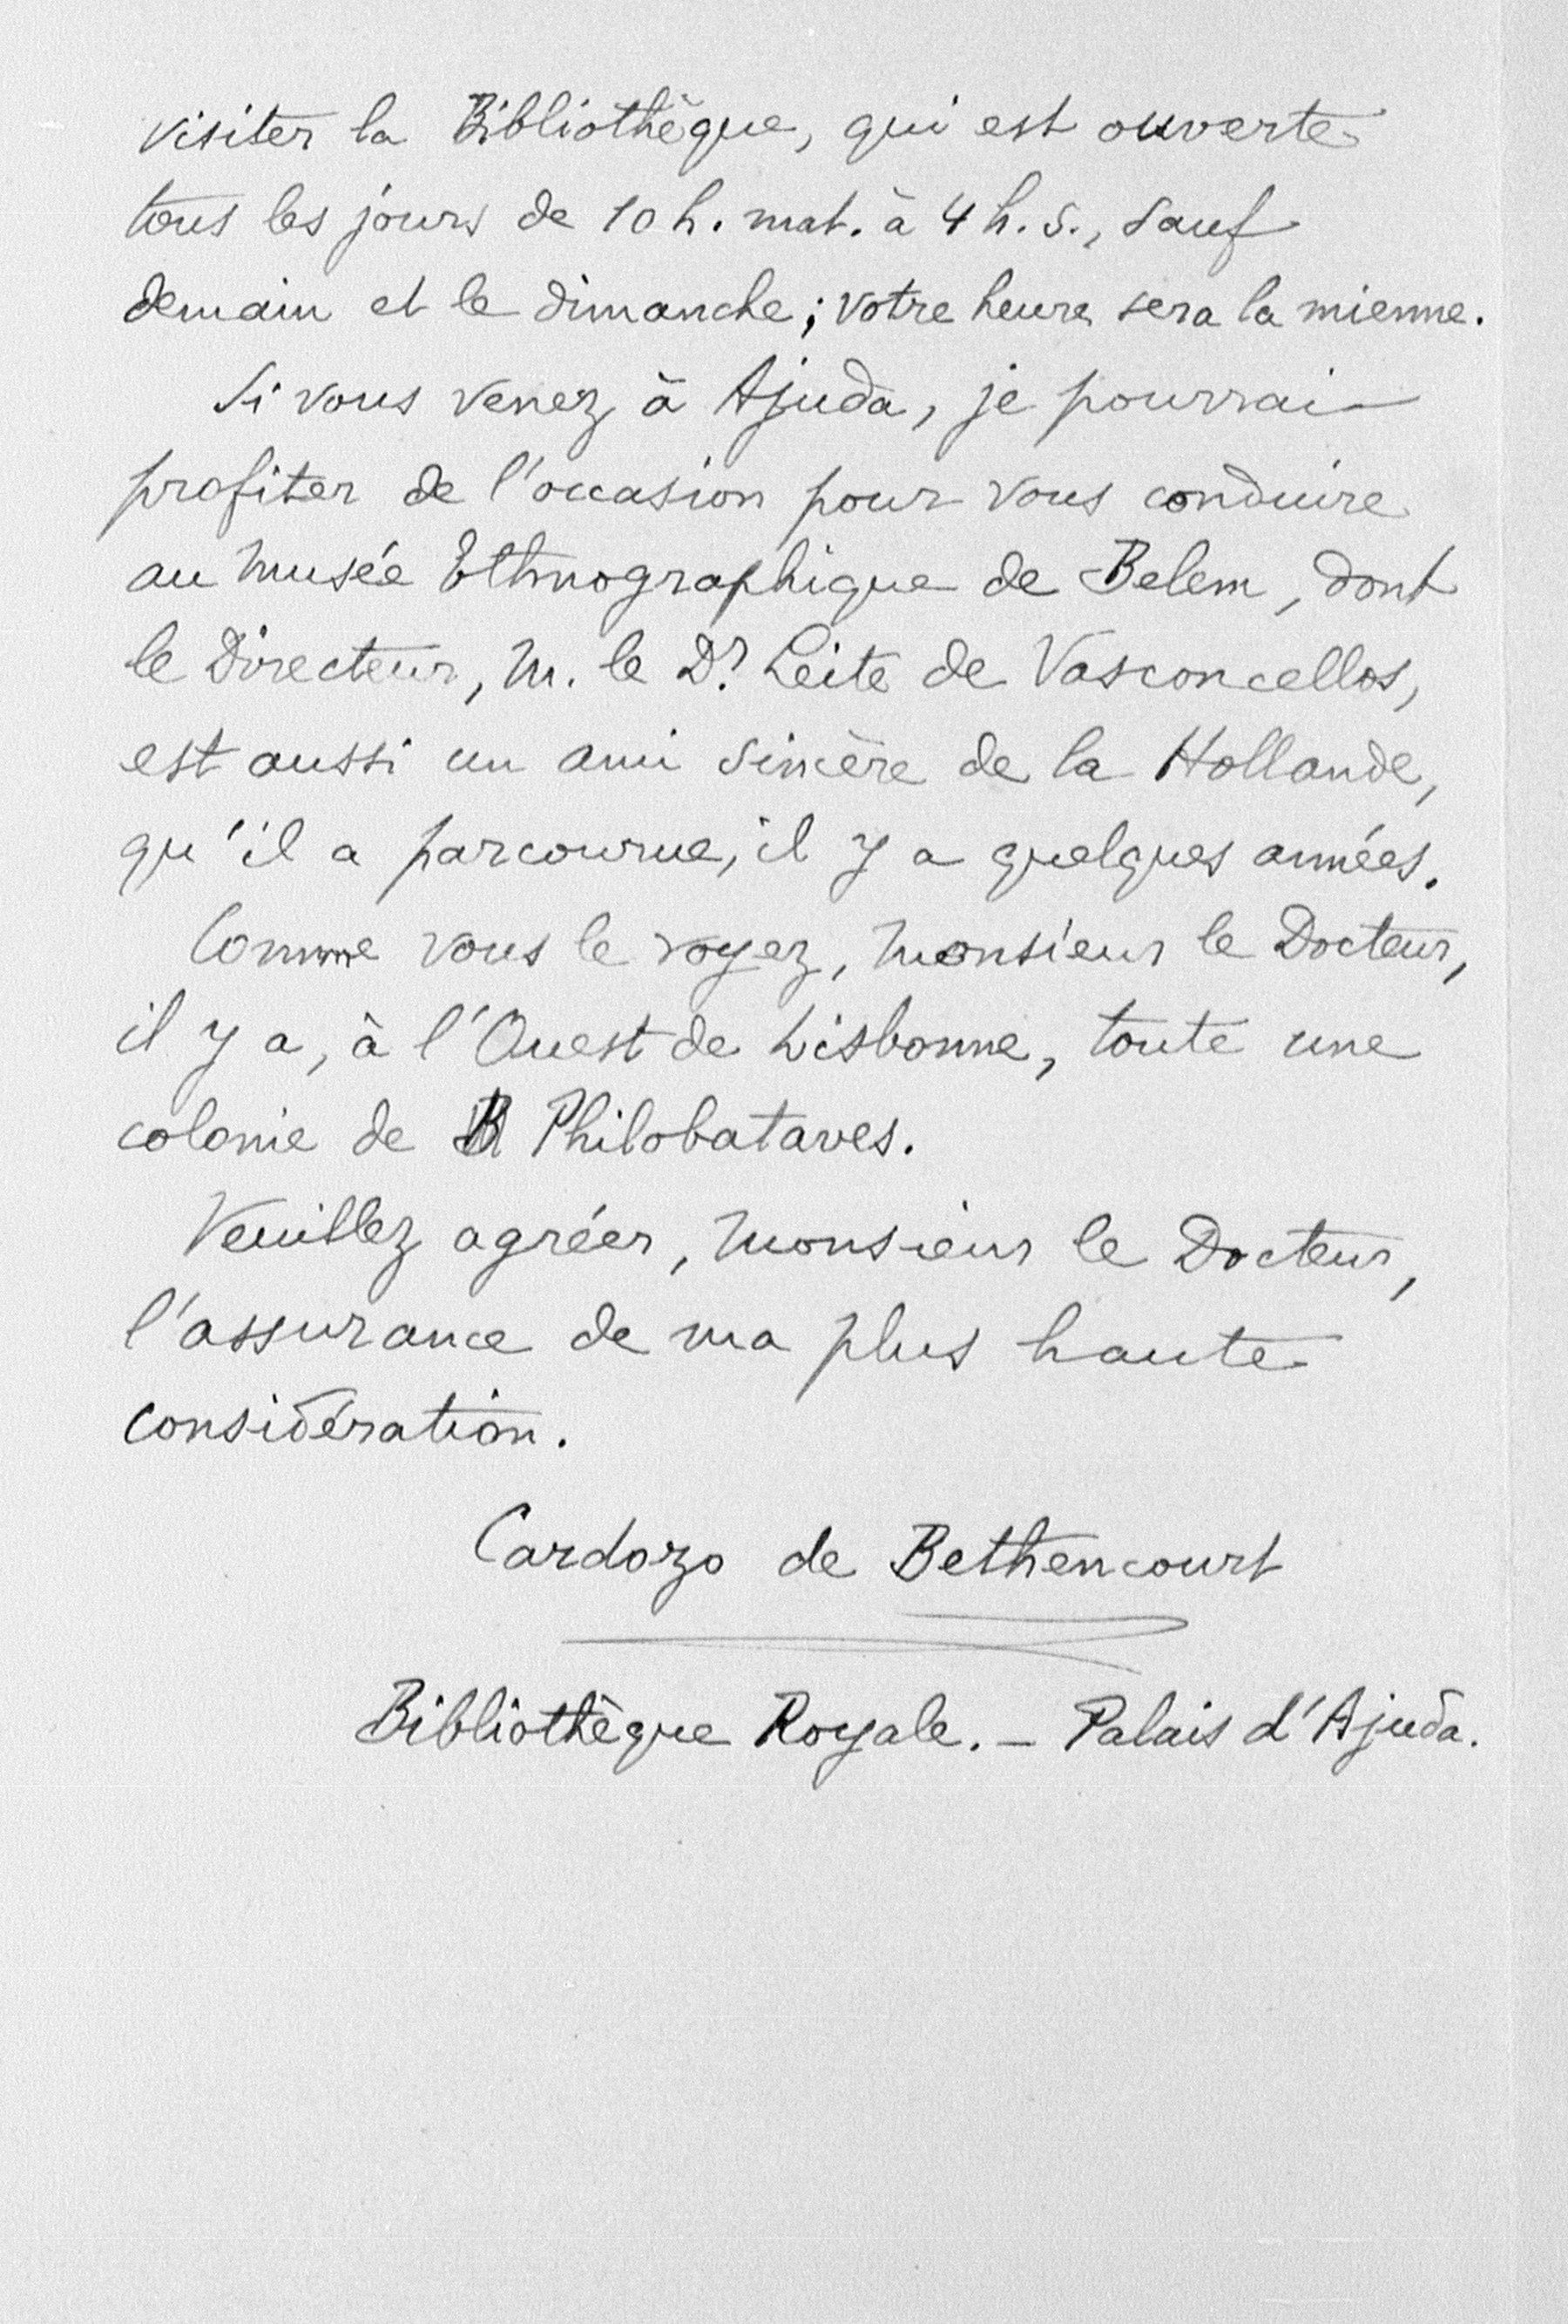 visiter la Bibliothèque, qui est ouverte
tous les jours de 10 h. mat. à 4 h. s., sauf
demain et le dimanche; votre heure sera la mienne.
Si vous venez à Ajuda, je pourrai
profiter de l'occasion pour vous conduire
au Musée Ethnographique de Belem, dont
le Directeur, M. le Dr. Leite de Vasconcellos,
est aussi un ami sincère de la Hollande,
qu'il a parcourue, il y a quelques années.
Comme vous le voyez, Monsieur le Docteur,
il y a, à l'Ouest de Lisbonne, toute une
colonie de Philobataves.
Veuillez agréer, Monsieur le Docteur,
l'assurance de ma plus haute
considération.
Cardozo de Bethencourt
Bibliothèque Royale. – Palais d'Ajuda.